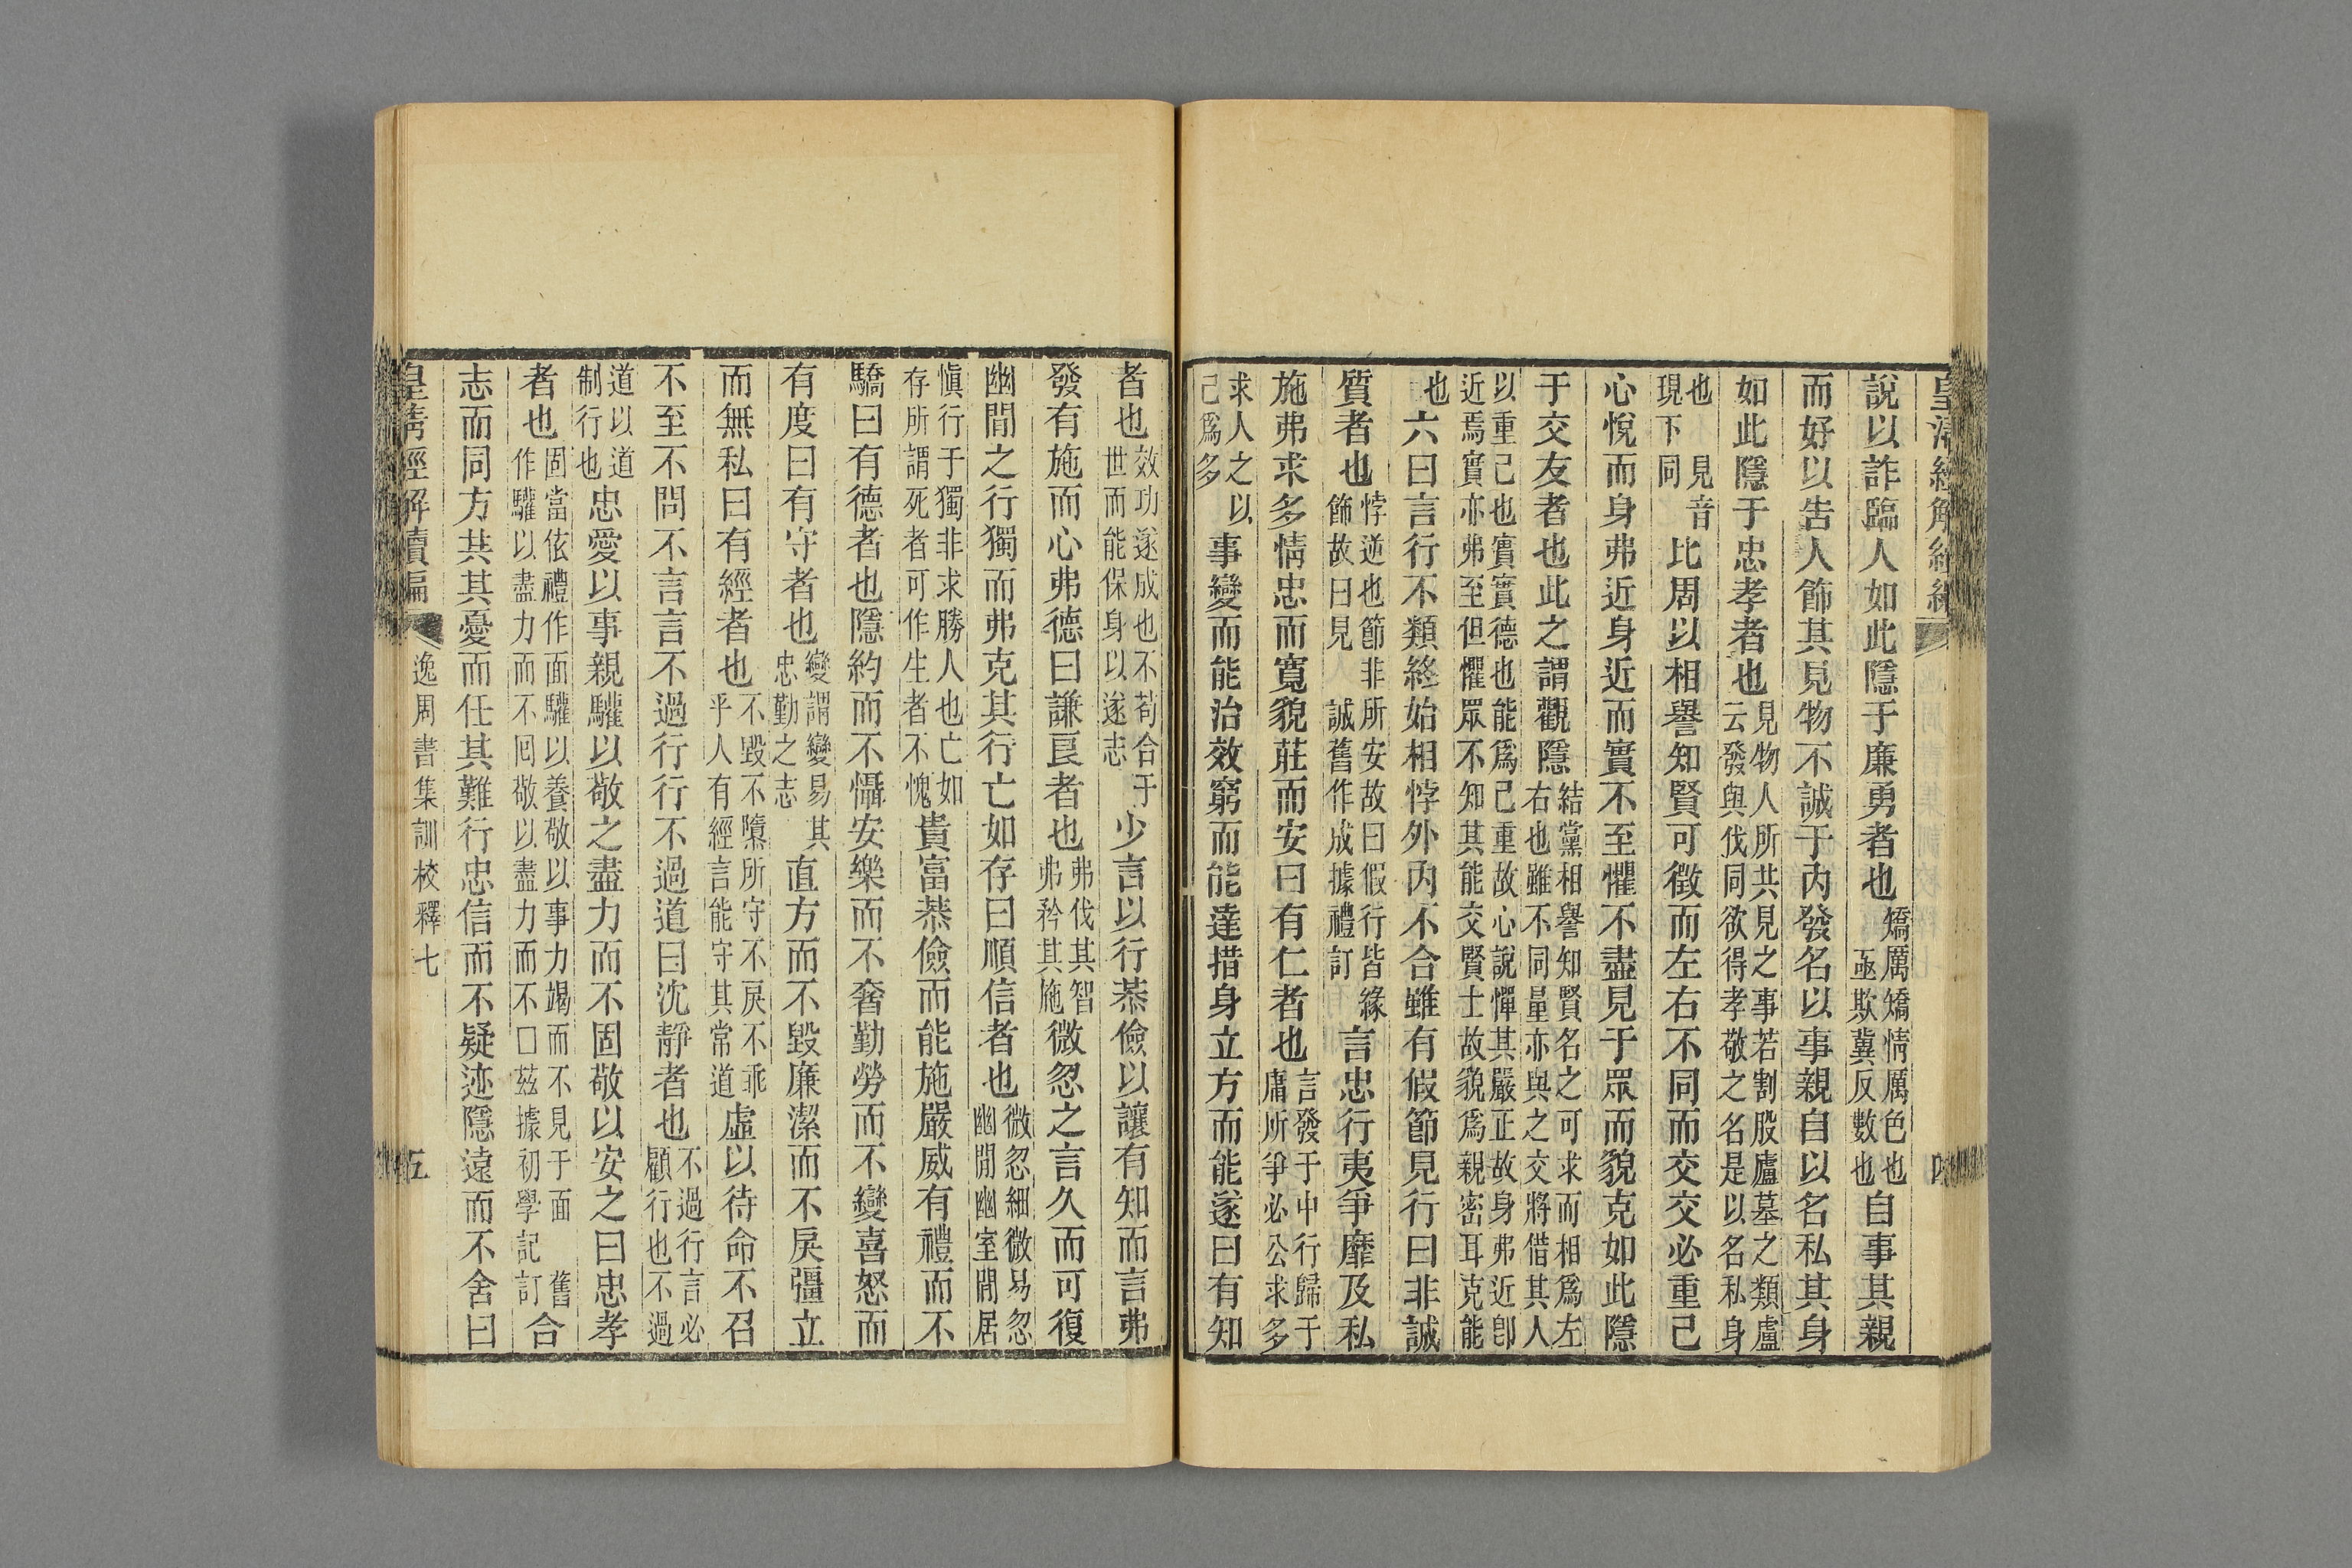 皇清經解續編
四
說以詐臨人如此隱于廉勇者也矯厲矯情厲色也亟欺冀反數也自事其親
而好以告人飾其見物不誠于內發名以事親自以名私其身
如此隱于忠孝者也見物人所共見之事若割股廬墓之類廬云發與伐同欲得孝敬之名是以名私身
也見音現下同比周以相譽知賢可徵而左右不同而交交必重己
心悅而身弗近身近而實不至懼不盡見于眾而貌克如此隱
于交友者也此之謂觀隱結黨相譽知賢名之可求而相爲左右也雖不同量亦與之交將借其人
以重己也實實德也能爲己重故心說憚其嚴正故身弗近卽近焉實亦弗至但懼眾不知其能交賢士故貌爲親密耳克能
也六曰言行不類終始相悖外內不合雖有假節見行曰非誠
質者也悖逆也節非所安故曰假行皆緣飾故曰見誠舊作成據禮訂言忠行夷爭靡及私
施弗求多情忠而寬貌莊而安曰有仁者也言發于中行歸于庸所爭必公求多
求人之以己爲多事變而能治效窮而能達措身立方而能遂曰有知
者也效功遂成也不苟合于世而能保身以遂志少言以行恭儉以讓有知而言弗
發有施而心弗德曰謙良者也弗伐其智弗矜其施微忽之言久而可復
幽閒之行獨而弗克其行亡如存曰順信者也微忽細微易忽幽閒幽室閒居
愼行于獨非求勝人也亡如存所謂死者可作生者不愧貴富恭儉而能施嚴威有禮而不
驕曰有德者也隱約而不懾安樂而不奢勤勞而不變喜怒而
有度曰有守者也變謂變易其忠勤之志直方而不毀廉潔而不戾彊立
而無私曰有經者也不毀不隳所守不戾不乖乎人有經言能守其常道虛以待命不召
不至不問不言言不過行行不過道曰沈靜者也不過行言必顧行也不過
道以道制行也忠愛以事親驩以敬之盡力而不固敬以安之曰忠孝
者也固當依禮作面驩以養敬以事力竭而不見于面舊作驩以盡力而不囘敬以盡力而不□茲據初學記訂合
志而同方共其憂而任其難行忠信而不疑迹隱遠而不舍曰
皇清經解續編
逸周書集訓校釋七
五